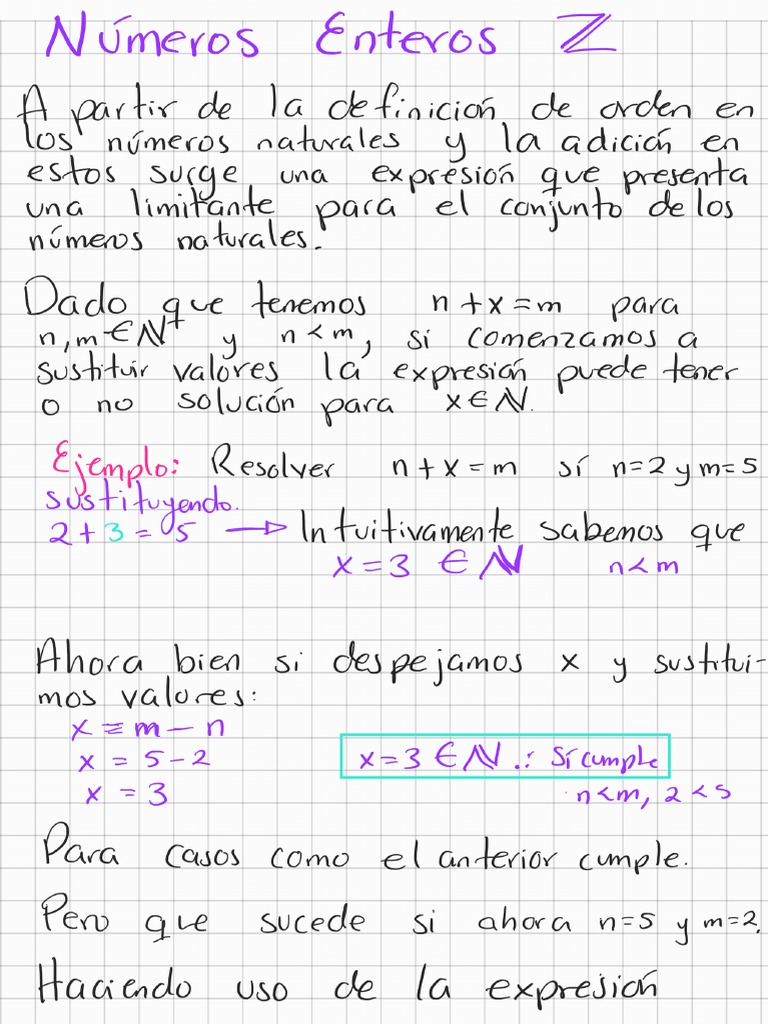 Números Enteros ℤ
A partir de la definición de orden en
los números naturales y la adición en
estos surge una expresión que presenta
una limitante para el conjunto de los
números naturales.
Dado que tenemos n+x=m para
n,m∈ℕ⁺ y n<m, si comenzamos a
sustituir valores la expresión puede tener
o no solución para x∈ℕ.
Ejemplo: Resolver n+x=m sí n=2 y m=5
sustituyendo.
2+3=5 → Intuitivamente sabemos que
x=3 ∈ℕ n<m
Ahora bien si despejamos x y sustitui-
mos valores:
x = m – n
x = 5 – 2 x=3 ∈ℕ ∴ Sí cumple
x = 3 n<m, 2<5
Para casos como el anterior cumple.
Pero que sucede si ahora n=5 y m=2.
Haciendo uso de la expresión